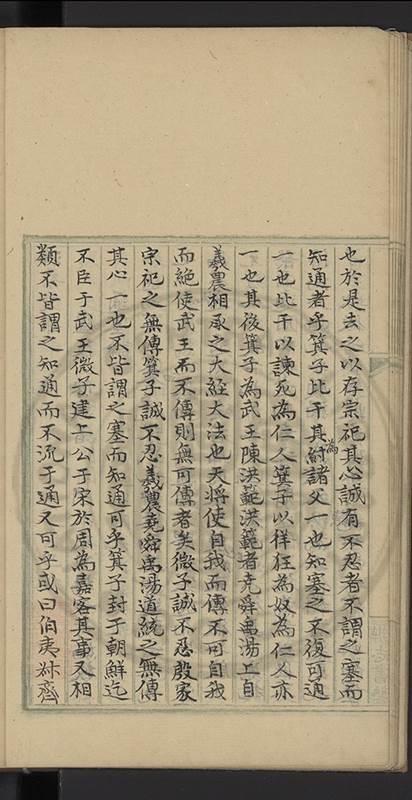 也於是去之以存宗祀其心誠有不忍者不謂之塞而
知通者乎箕子比干其為紂諸父一也知塞之不復可通
一也比干以諫死為仁人箕子以徉狂為奴為仁人亦
一也其後箕子為武王陳洪範洪範者堯舜禹湯上自
羲農相承之大經大法也天將使自我而傳不可自我
而絕使武王而不傳則無可傳者矣微子誠不忍殷家
宗祀之無傳箕子誠不忍羲農堯舜禹湯道統之無傳
其心一也不皆謂之塞而知通可乎箕子封于朝鮮迄
不臣于武王微子建上公于宋於周為嘉客其事又相
類不皆謂之知通而不流于通又可乎或曰伯夷叔齊